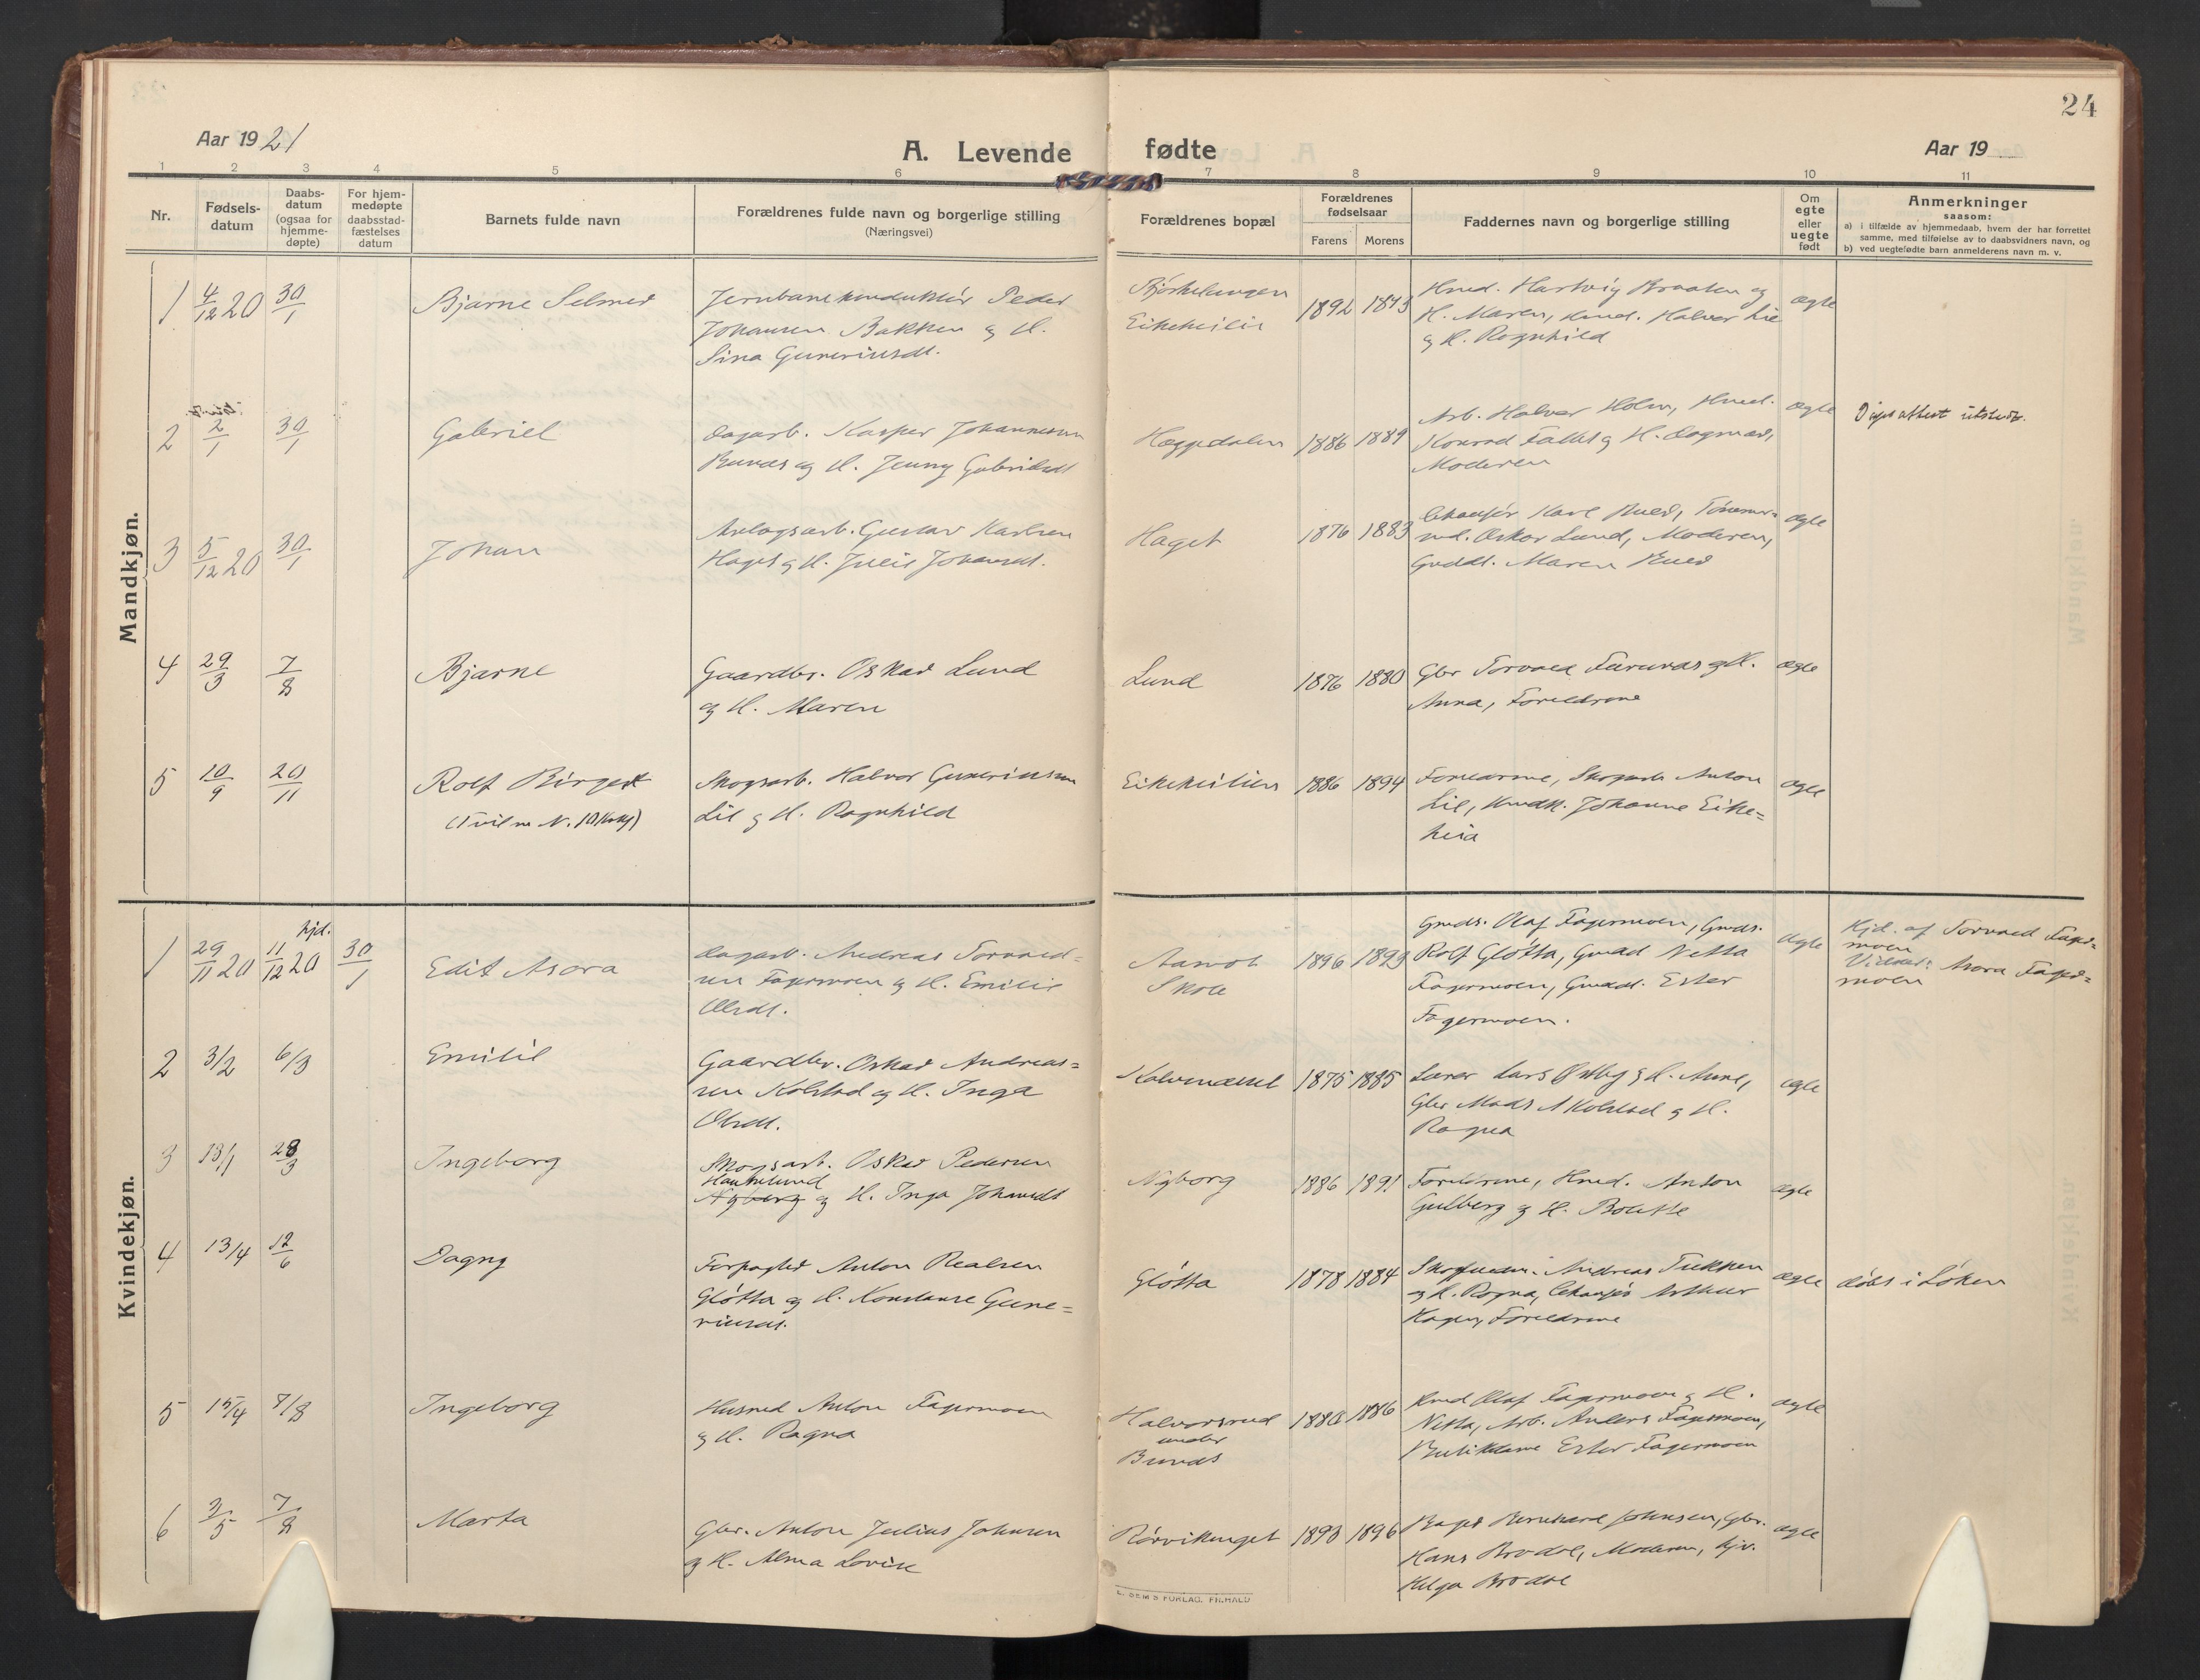 24
Aar 1921
A. Levende fødte
Aar 19
1 2 3 4 5 6 7 8 9 10 11
Nr.
Fødsels-
datum
Daabs-
datum
(ogsaa for
hjemme-
døpte)
For hjem-
medøpte
daabsstad-
fæstelses
datum
Barnets fulde navn
Forældrenes fulde navn og borgerlige stilling
(Næringsvei)
Forældrenes bopæl
Forældrenes
fødselsaar
Farens Morens
Faddernes navn og borgerlige stilling
Om
egte
eller
uegte
født
Anmerkninger
saasom:
a) i tilfælde av hjemmedaab, hvem der har forrettet
samme, med tilføielse av to daabsvidners navn, og
b) ved uegtefødte barn anmelderens navn m. v.
Mandkjøn.
1 4/12 20 30/1
Bjarne Selmer
Jernbanekonduktør Peder
Johansen Bakken og H.
Sina Guneriusdt.
1892
Hmd. Hartvig Braaten og
H. Maren, Hmd. Halvor Lie
og H. Ragnhild
ægte
2 2/1 30/1
Gabriel
Dagarb. Kasper Johannesen
Bunæs og H. Jenny Gabrielsdt
Hæggedalen
1886 1889
Arb. Halvor Holm, Hmd.
Konrad Falles og H. Dagmar,
Moderen
ægte
3 5/12 20 30/1
Johan
Anlægsarb. Gustav Karlsen
Haget og H. Julie Johansdt.
Haget
1876 1883
Chauffør Karl Rud, Tømmer-
md. Oskar Lund, Moderen,
Maren Rud
ægte
4 29/3 7/8
Bjarne
Gaardbr. Oskar Lund
og H. Maren
Lund
1876 1880
Gbr Torvald Furunæs og H.
Anna, Foreldrene
ægte
5 10/9 20/11
Rolf Birger
(Tvil m N. 10 Kvkj)
Skogsarb. Halvor Guneriussen
Lie og H. Ragnhild
1886 1894
Foreldrene, Skogsarb Anton
Lie, Johanne Eike-
heia
ægte
Kvindekjøn.
1 29/11 20 hjd. 11/12 20 30/1
Edit Asora
Dagarb. Andreas Torvald-
sen Fagermoen og H. Emilie
Olsdt.
Aamot
Skole
1896 1893
Gmds. Olaf Fagermoen, Gmds.
Rolf Gløtta, Netta
Fagermoen, Ester
Fagermoen.
ægte
Hjd. af Torvald Fager-
moen
Vidner: Asora Fager-
moen
2 3/2 6/3
Emilie
Gaardbr. Oskar Andreas-
sen Kolstad og H. Inga
Olsdt.
1875 1885
Lærer Lars Østby og H. Anne,
Gbr Mads A Kolstad og H.
Ragna
ægte
3 13/1 28/3
Ingeborg
Skogsarb. Oskar Pedersen
Haukelund
Nyborg og H. Inga Johansdt
Nyborg
1886 1891
Foreldrene, Hmd. Anton
Gulberg og H. Bolette
ægte
4 13/4 12/6
Dagny
Forpagter Anton Realsen
Gløtta og H. Konstanse Gune-
riusdt.
Gløtta
1878 1884
Andreas Tukken
og H. Ragna, Chauffør Arthur
Hagen, Foreldrene
ægte
døbt i Løken
5 15/4 7/8
Ingeborg
Husmd Anton Fagermoen
og H. Ragna
Halvorsrud
under
Bunæs
1880 1886
Hmd Olaf Fagermoen og H.
Netta, Arb. Anders Fagermoen,
Butikdame Ester Fagermoen
ægte
6 3/5 7/8
Marta
Gbr. Anton Julius Johnsen
og H. Alma Lovise
Rørvikenget
1893 1896
Bager Bernhard Johnsen, Gbr.
Hans Brodal, Moderen, Gjv.
Helga Brodal
ægte
E. SEM'S FORLAG, FR.HALD